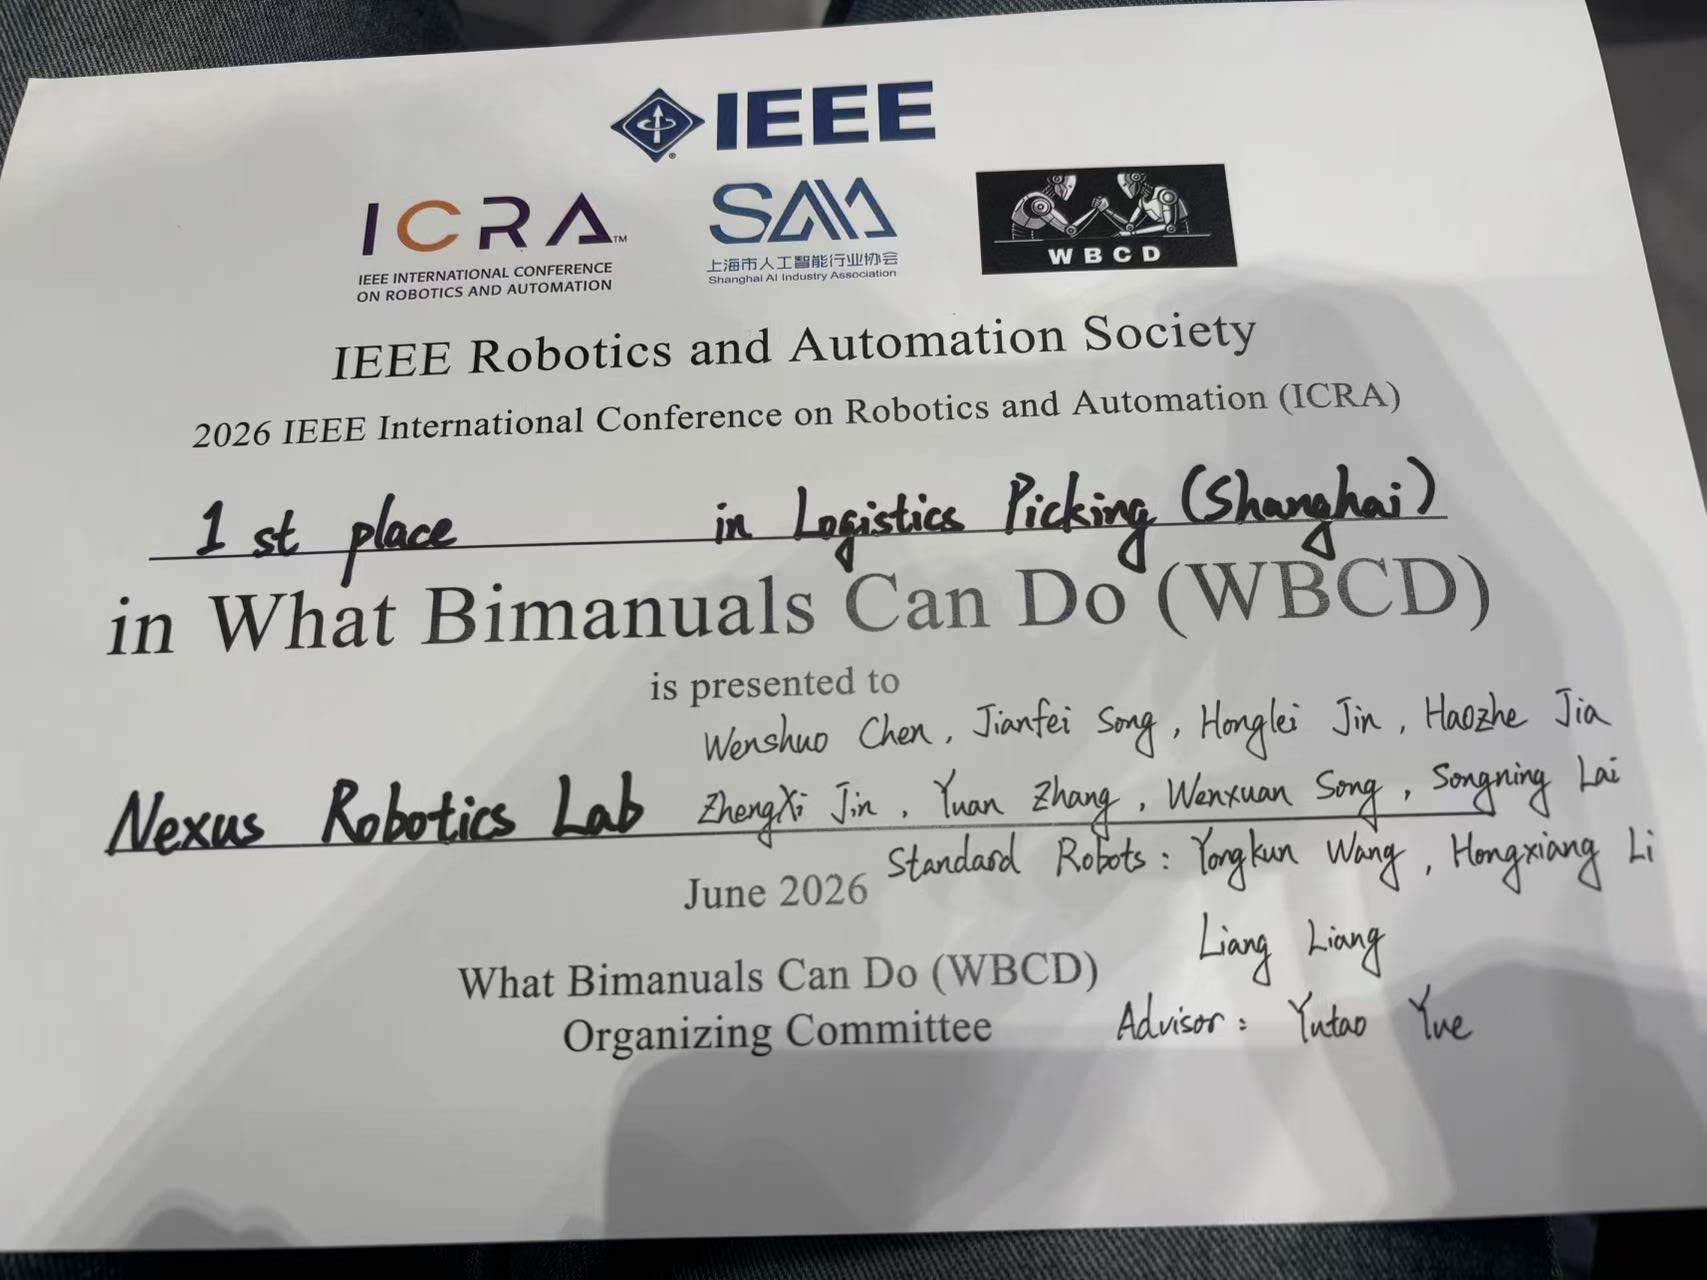 IEEE
ICRA™
IEEE INTERNATIONAL CONFERENCE
ON ROBOTICS AND AUTOMATION
SAIA
上海市人工智能行业协会
Shanghai AI Industry Association
WBCD
IEEE Robotics and Automation Society
2026 IEEE International Conference on Robotics and Automation (ICRA)
1st place in Logistics Picking (Shanghai)
in What Bimanuals Can Do (WBCD)
is presented to
Wenshuo Chen, Jianfei Song, Honglei Jin, Haozhe Jia
Nexus Robotics Lab ZhengXi Jin, Yuan Zhang, Wenxuan Song, Songning Lai
Standard Robots: Yongkun Wang, Hongxiang Li
June 2026
Liang Liang
What Bimanuals Can Do (WBCD)
Organizing Committee
Advisor: Yutao Yue